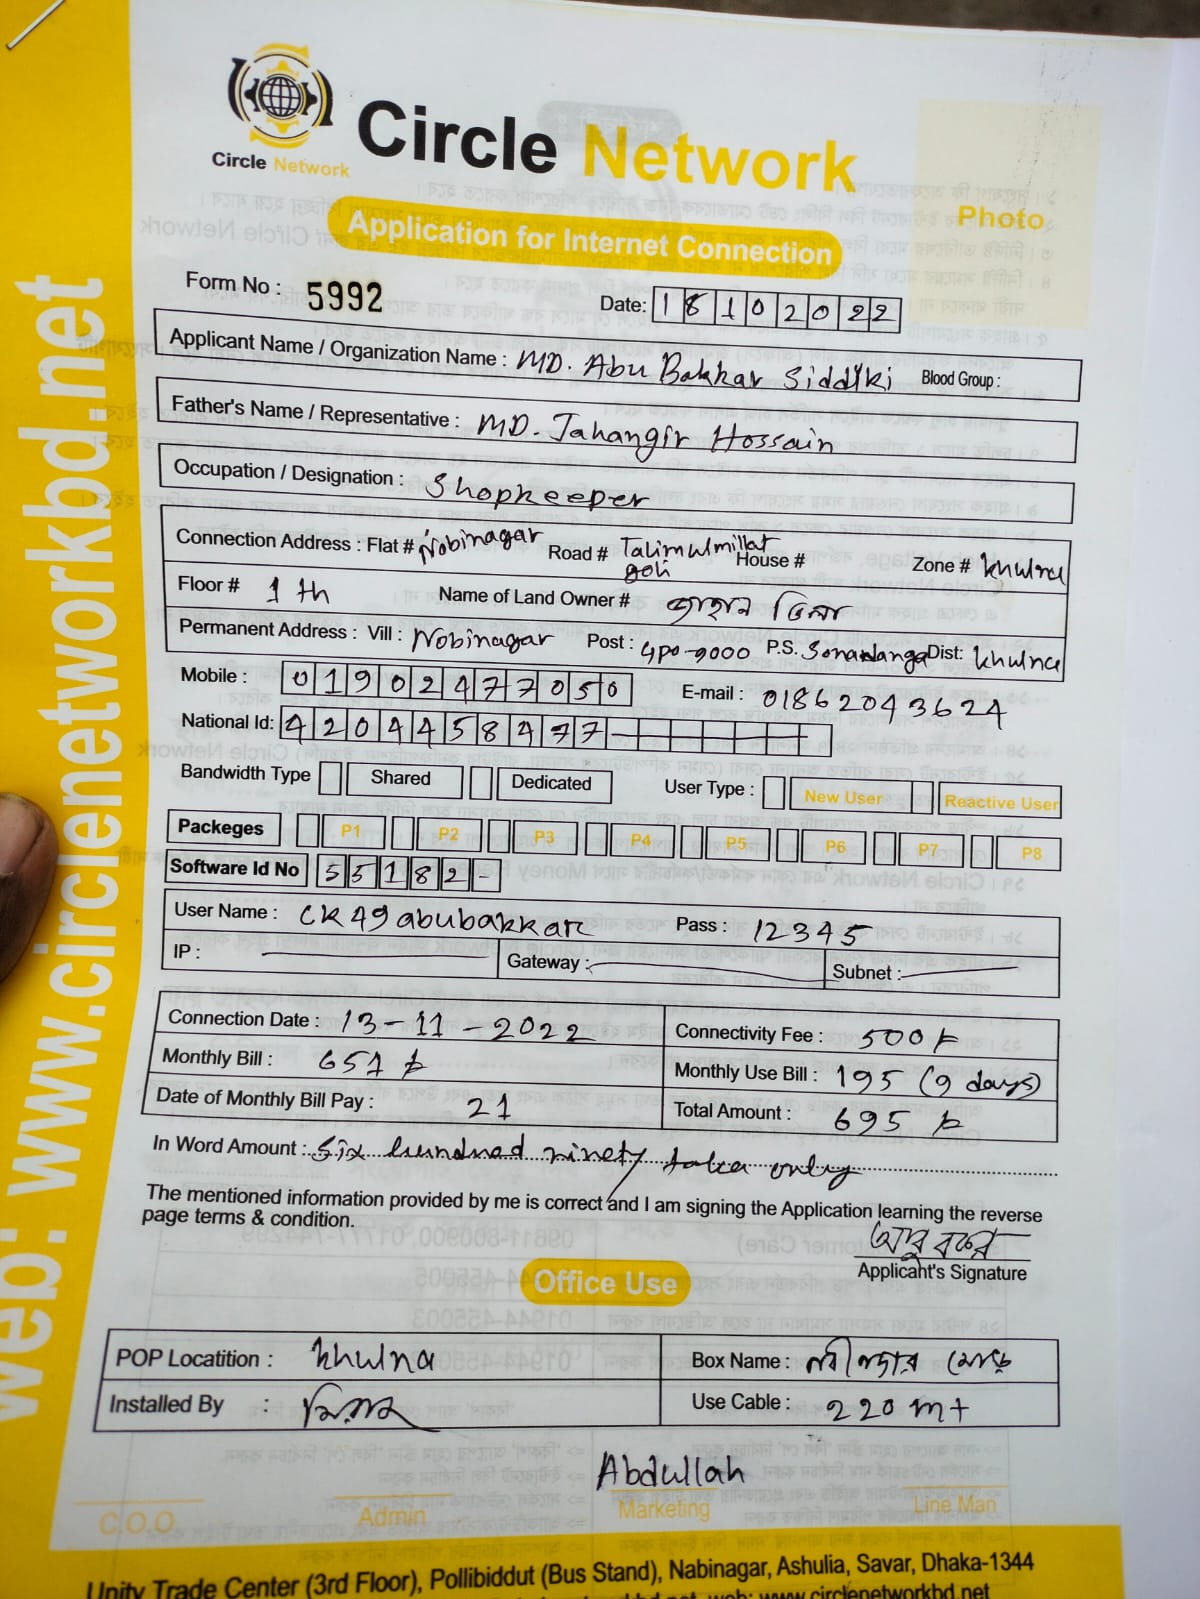 Circle Network
Circle Network
Photo
Application for Internet Connection
Form No : 5992
Date: 18102022
Applicant Name / Organization Name : MD. Abu Bakkar Siddiki Blood Group :
Father's Name / Representative : MD. Jahangir Hossain
Occupation / Designation : Shopkeeper
Connection Address : Flat # Nobinagar Road # Talimulmillat goli House # Zone # Khulna
Floor # 1 th Name of Land Owner #
Permanent Address : Vill : Nobinagar Post : GPO-9000 P.S. Sonadanga Dist: Khulna
Mobile : 01902477050 E-mail : 01862043624
National Id: 4204458477
Bandwidth Type Shared Dedicated User Type : New User Reactive User
Packeges P1 P2 P3 P4 P5 P6 P7 P8
Software Id No 55182-
User Name : CK49abubakkar Pass : 12345
IP : Gateway : Subnet :
Connection Date : 13-11-2022 Connectivity Fee : 500৳
Monthly Bill : 651 ৳ Monthly Use Bill : 195 (9 days)
Date of Monthly Bill Pay : 21 Total Amount : 695 ৳
In Word Amount : Six hundred ninety taka only
The mentioned information provided by me is correct and I am signing the Application learning the reverse
page terms & condition.
আবু বক্কর
Applicant's Signature
Office Use
POP Locatition : Khulna Box Name :
Installed By : Use Cable : 220 mt
Abdullah
C.O.O Admin Marketing Line Man
Unity Trade Center (3rd Floor), Pollibiddut (Bus Stand), Nabinagar, Ashulia, Savar, Dhaka-1344
web: www.circlenetworkbd.net
web: www.circlenetworkbd.net